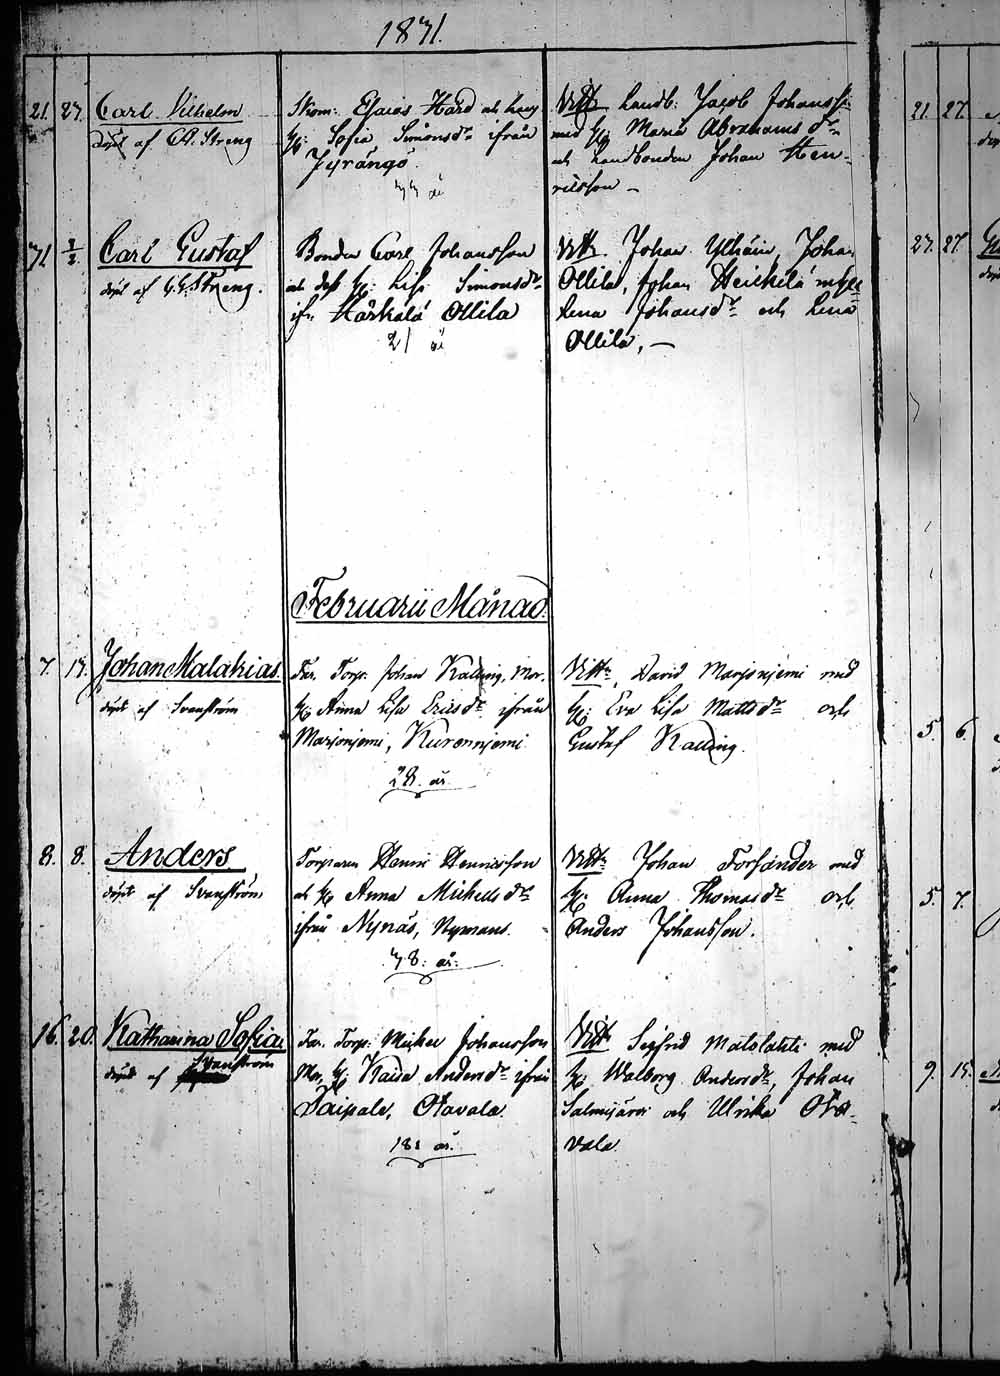 1871.
21. 27. Carl Vilhelm
döpt af C.A. Streng
Skom: Esaias Hård och hans
h: Sofia Simonsdr ifrån
Jyrängö.
44 år
Vittn Landb: Jacob Johanss:
med h: Maria Abrahamsdr
och Landbonden Johan Hen-
ricsson –
31 2/2 Carl Gustaf
döpt af G.G. Streng.
Bonden Carl Johansson
och dess h: Lisa Simonsdr
ifn Härkälä Ollila
21 år
Vittn Johan Ylhäin, Johan
Ollila, Johan Heickilä
Lena Johansdr och Lena
Ollila, –
Februarii Månad.
7. 14. Johan Malakias.
döpt af Svanström
Far. Torp. Johan Kalling, Mor.
h: Anna Lisa Ericsdr ifrån
Marjoniemi, Kurenniemi
28. år.
Vittn, David Marjoniemi med
h: Eva Lisa Mattsdr och
Gustaf Kalling.
8. 8. Anders.
döpt af Svanström
Torparen Henric Henricsson
och h: Anna Michelsdr
ifrån Nynäs, Nymans.
48: år.
Vittn Johan Forsander med
h: Anna Thomasdr och
Anders Johansson.
16. 20. Katharina Sofia
döpt af Svanström
Far. Torp: Mickel Johansson
Mor, h: Kaisa Andersdr ifrån
Paipala, Otavala.
18: år.
Vittn Sigfrid Matolahti med
h: Walborg Andersdr, Johan
Salmijärvi och Ulrika Ota-
vala.
21. 27.
27. 27
5. 6.
5. 7.
9. 15.